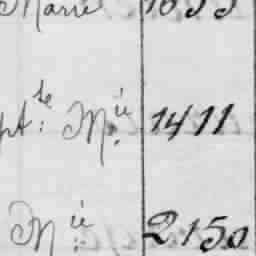 Marie
pt.te M.ie 1411
M.ie 2150